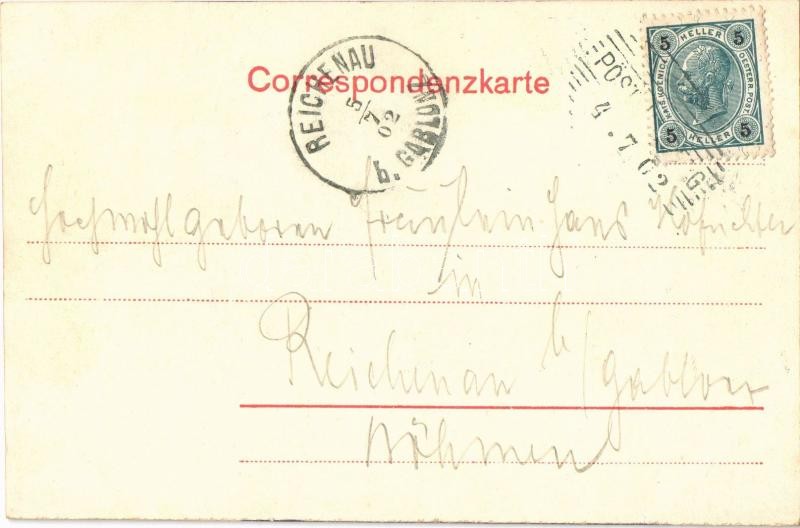 Correspondenzkarte
REICHENAU
5/7
02
b. GABLONZ
POST
4.7.02
5 HELLER 5
KAIS. KOENIGL.
OESTERR. POST.
5 HELLER 5
Hochwohlgeboren Fräulein
in
Reichenau b/
Böhmen